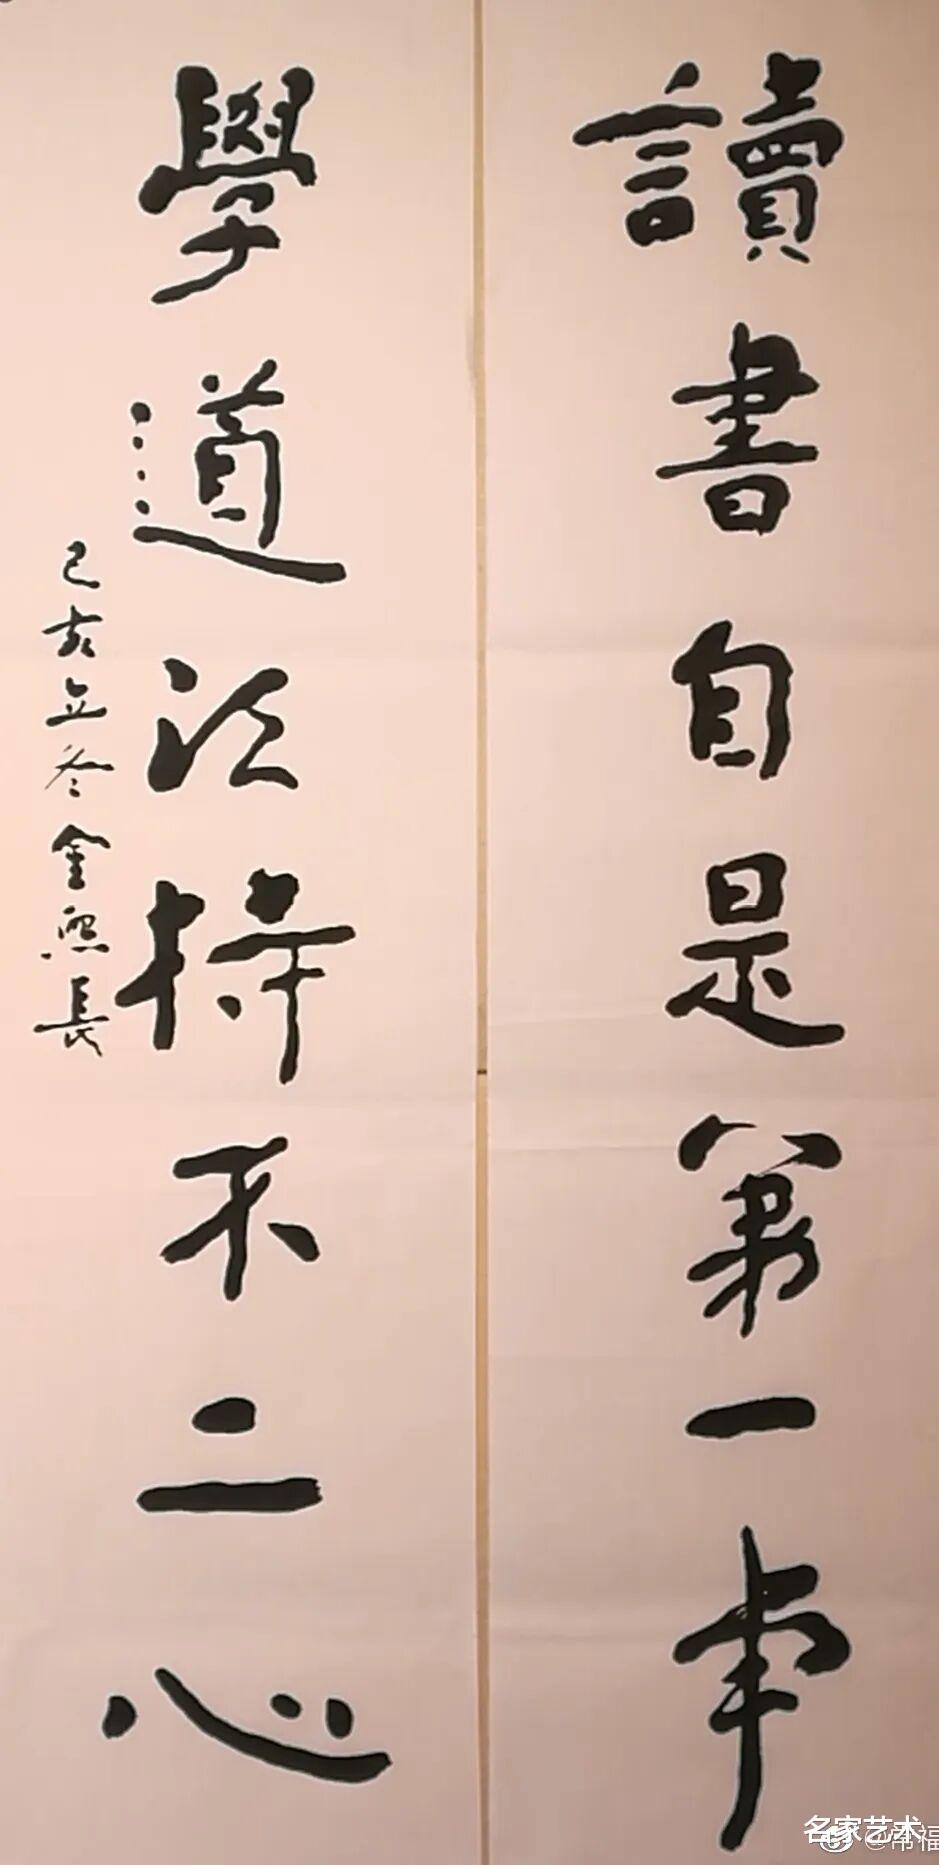 讀書自是第一事
學道須持不二心
己亥立冬金煕長
名家艺术
@常福